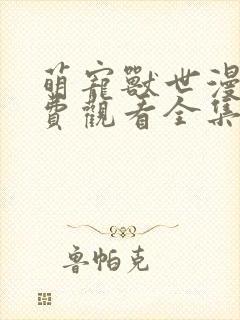 萌寵獸世漫
費觀看全集
魯帕克